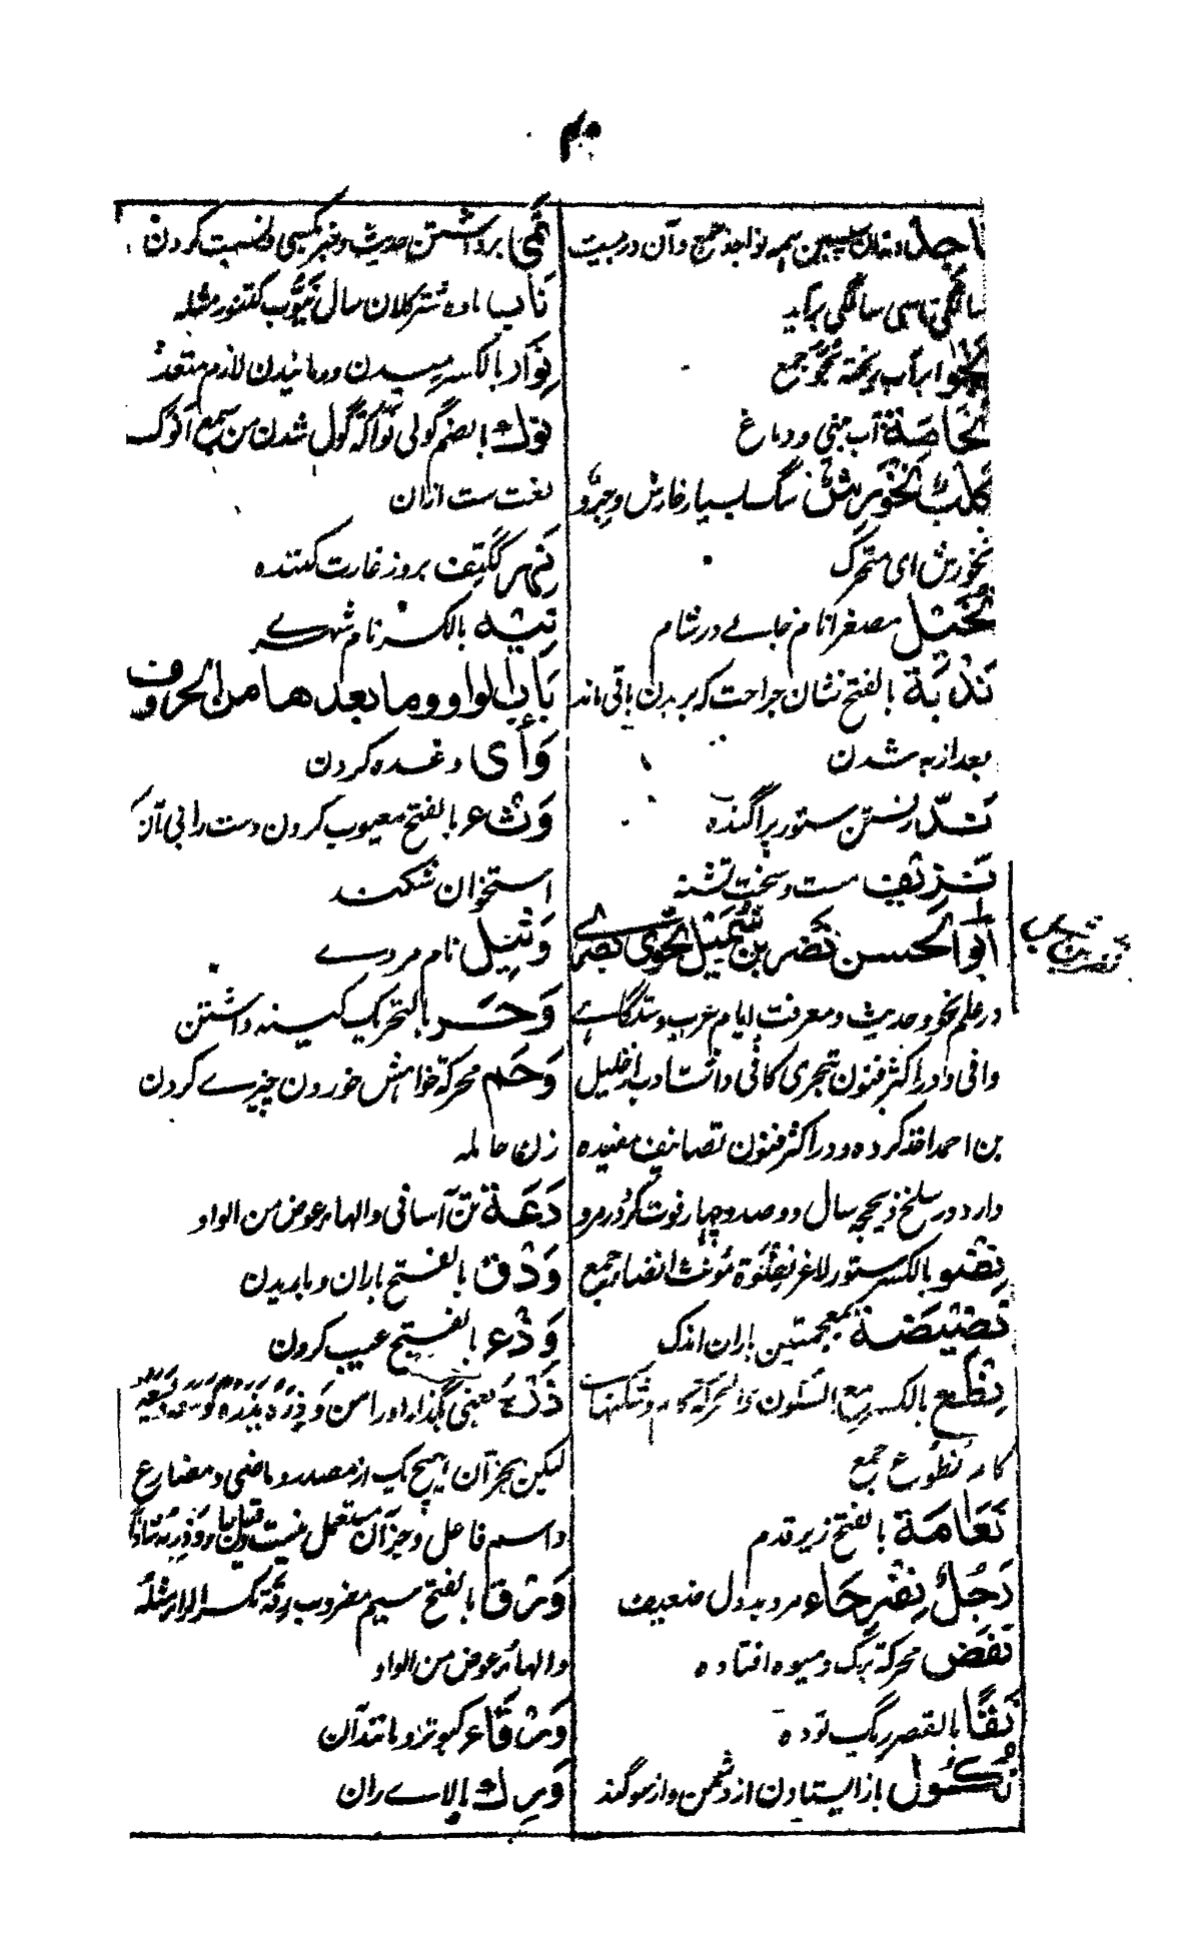 ۴۰
ناجذ دندان پسین همه نواجذ جمع و آن در بیست
سالگی تا سی سالگی برآید
نجو ابر آب ریخته نجو جمع
آب بینی و دماغ
كلب نخورش سگ بسیار خارش و جرو
نخورش ای متحرک
نخیل مصغرا نام جائے در شام
ندبة بالفتح نشان جراحت که بر بدن باقی ماند
بعد از به شدن
ندّ رفتن ستور پراگنده
نزیف مست و سخت تشنه
ابو الحسن نضر بن شمیل نحوی بصرے
در علم نحو و حدیث و معرفت ایام عرب دستگاهے
وافی و در اکثر فنون تبحری کافی داشت ادب از خلیل
بن احمد اخذ کرده و در اکثر فنون تصانیف مفیده
دارد در سلخ ذیحجه سال دو صد و چهار فوت کرد در مرو
نضو بالکسر ستور لاغر نضوة مؤنث انضاء جمع
نضیضة بمعجمتین باران اندک
نطع بالکسر مع السکون والحرکة
کام نطوع جمع
نعامة بالفتح زیر قدم
رجل نفرجاء مرد بددل ضعیف
نفض محرکة برگ و میوه افتاده
نقا بالقصر ریگ توده
نکول باز ایستادن از دشمن و از سوگند
نمی برداشتن حدیث و خبر بکسی و نسبت کردن
ناب ماده شتر کلان سال نیوب کفنور مثله
نوار بالکسر رمیدن و رمانیدن لازم متعد
نوك بالضم گولی نواکة گول شدن من سمع انوک
لغت ست ازان
نهر ککتف بروز غارت کننده
نیه بالکسر نام شهرے
باب الواو وما بعدها من الحروف
وأی وعده کردن
وثء بالفتح معیوب کردن دست را بی آن که
استخوان شکند
وثیل نام مردے
وحر بالتحریک کینه داشتن
وحم محرکة خواهش خوردن چیزے کردن
زن حامله
دعة تن آسانی والهاء عوض من الواو
ودق بالفتح باران و باریدن
وذء بالفتح عیب کردن
ذره یعنی بگذار او را من وذره یذره کوسعه یسعه
لیکن بجز آن هیچ یک از مصدر و ماضی و مضارع
واسم فاعل و جز آن مستعمل نیست
ورق بالفتح سیم مضروب رقة بکسر الراء مثله
والهاء عوض من الواو
ورقاء کبوتر و مانند آن
ورك بالاے ران
نضر بن شمیل